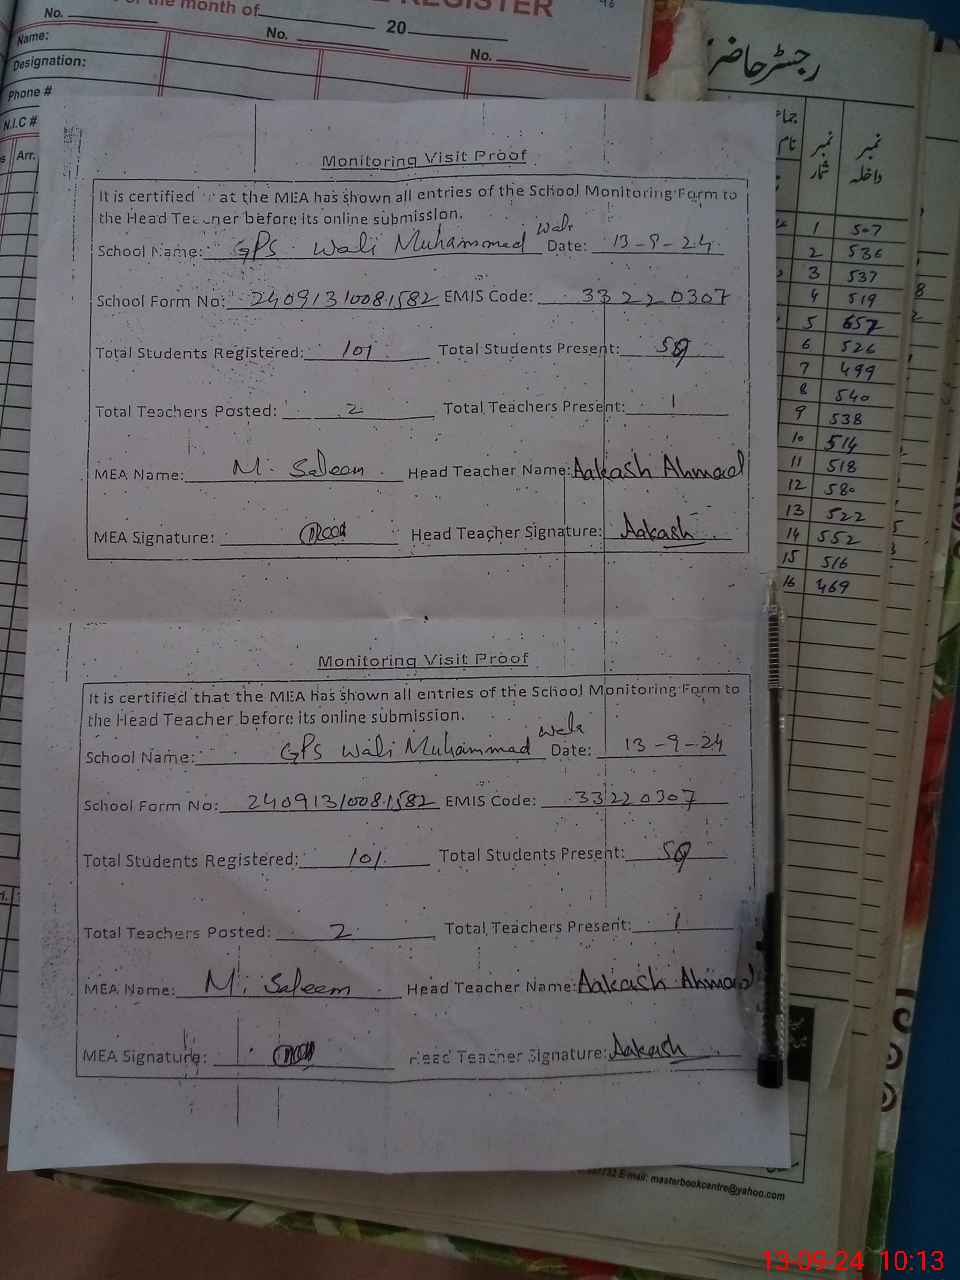 of the month of 20
REGISTER
No.
No.
No.
Name:
Designation:
Phone #
N.I.C #
Arr.
Monitoring Visit Proof
It is certified at the MEA has shown all entries of the School Monitoring Form to
the Head Teacher before its online submission.
School Name: GPS Wali Muhammad Wala Date: 13-9-24
School Form No: 24091310081582 EMIS Code: 33220307
Total Students Registered: 101 Total Students Present: 59
Total Teachers Posted: 2 Total Teachers Present: 1
MEA Name: M. Saleem Head Teacher Name: Aakash Ahmad
MEA Signature: Head Teacher Signature: Aakash
Monitoring Visit Proof
It is certified that the MEA has shown all entries of the School Monitoring Form to
the Head Teacher before its online submission.
School Name: GPS Wali Muhammad Wala Date: 13-9-24
School Form No: 24091310081582 EMIS Code: 33220307
Total Students Registered: 101 Total Students Present: 59
Total Teachers Posted: 2 Total Teachers Present: 1
MEA Name: M. Saleem Head Teacher Name: Aakash Ahmad
MEA Signature: Head Teacher Signature: Aakash
رجسٹر حاضری
نمبر شمار
نمبر داخلہ
1 507
2 536
3 537
4 519
5 657
6 526
7 499
8 540
9 538
10 514
11 518
12 580
13 522
14 552
15 516
16 469
E-mail: masterbookcentre@yahoo.com
13-09-24 10:13